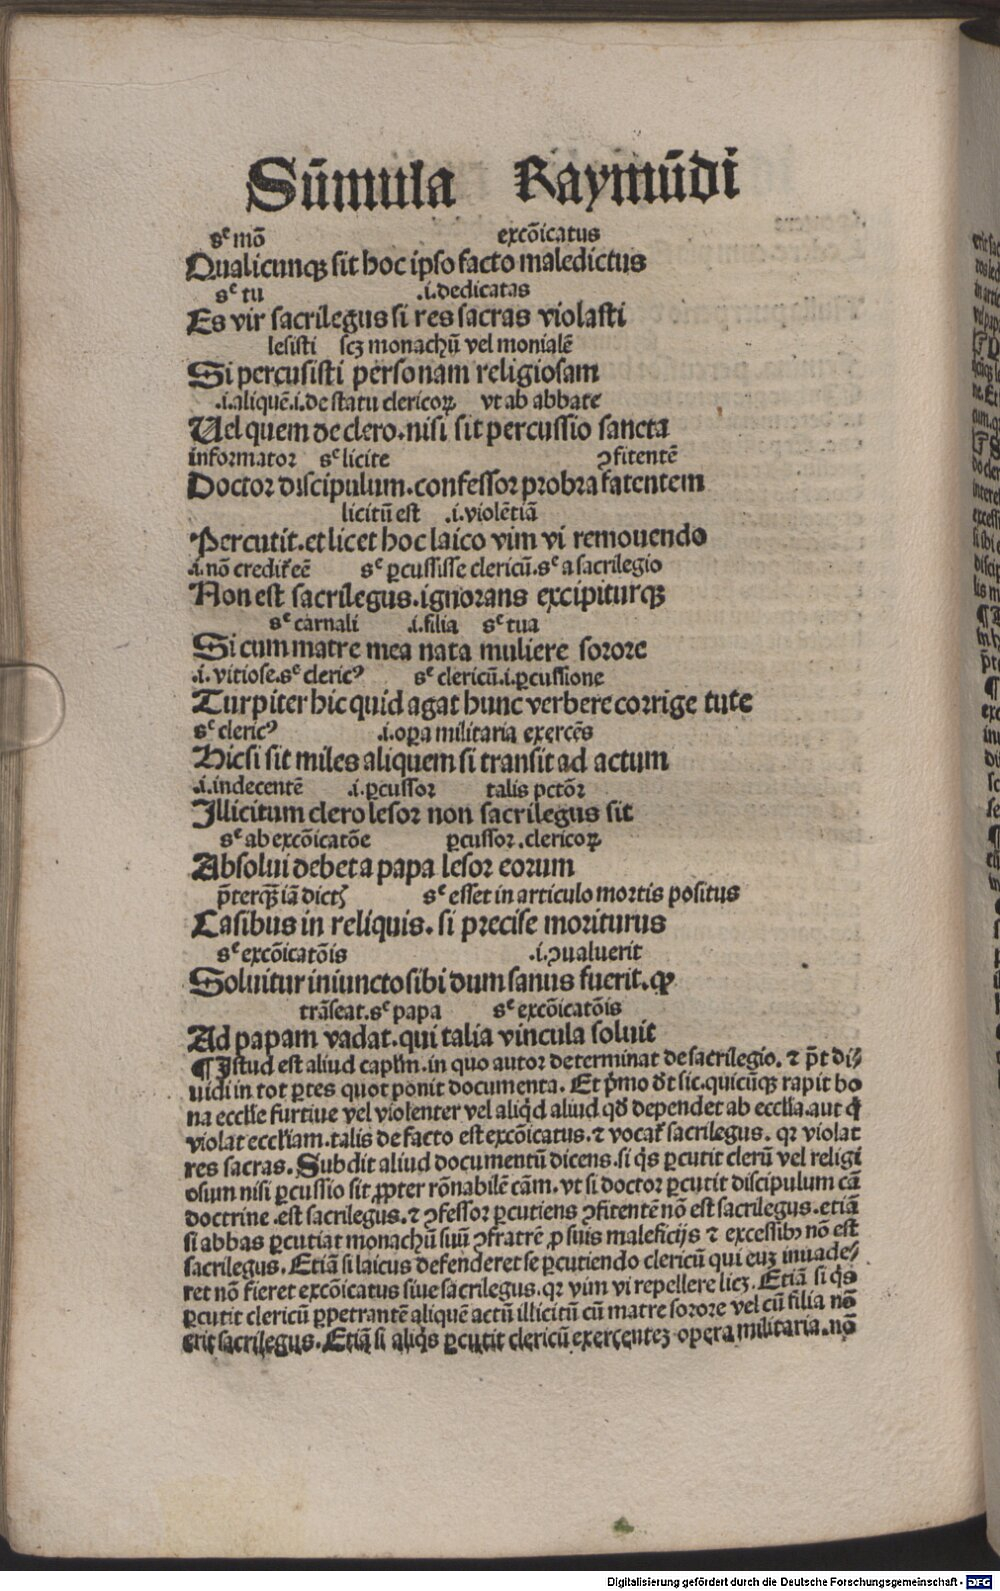 Sūmula Raymūdi
sᶜ mō excōicatus
Qualicunqꝫ sit hoc ipso facto maledictus
sᶜ tu .i.dedicatas
Es vir sacrilegus si res sacras violasti
lesisti scꝫ monachū vel monialē
Si percusisti personam religiosam
.i.aliquē.i.de statu clericoꝝ vt ab abbate
Uel quem de clero.nisi sit percussio sancta
informator sᶜ licite ꝯfitentē
Doctor discipulum.confessor probra fatentem
licitū est .i.violētiā
Percutit.et licet hoc laico vim vi remouendo
.i.nō credit̉ eē sᶜ ꝑcussisse clericū.sᶜ a sacrilegio
Non est sacrilegus.ignorans excipiturqꝫ
sᶜ carnali .i.filia sᶜ tua
Si cum matre mea nata muliere sorore
.i.vitiose.sᶜ clericꝰ sᶜ clericū.i.ꝑcussione
Turpiter hic quid agat hunc verbere corrige tute
sᶜ clericꝰ .i.oꝑa militaria exercēs
Hic si sit miles aliquem si transit ad actum
.i.indecentē .i.ꝑcussor talis pctōr
Illicitum clero lesor non sacrilegus sit
sᶜ ab excōicatōe ꝑcussor .clericoꝝ
Absolui debet a papa lesor eorum
p̄terqꝫ̄ iā dictꝭ sᶜ esset in articulo mortis positus
Casibus in reliquis. si precise moriturus
sᶜ excōicatōis .i.ꝯualuerit
Soluitur iniuncto sibi dum sanus fuerit.qꝙ
trāseat.sᶜ papa sᶜ excōicatōis
Ad papam vadat.qui talia vincula soluit
¶ Istud est aliud caplm̄.in quo autor determinat de sacrilegio. ⁊ p̄t di⸗
uidi in tot ꝑtes quot ponit documenta. Et pͥmo dt̄ sic.quicūqꝫ rapit bo
na eccl̄ie furtiue vel violenter vel aliqͥd aliud qd̄ dependet ab eccl̄ia.aut qͥ
violat eccl̄iam.talis de facto est excōicatus. ⁊ vocat̉ sacrilegus. qꝛ violat
res sacras. Subdit aliud documentū dicens.si qͥs ꝑcutit clerū vel religi
osum nisi ꝑcussio sit ꝓpter rōnabilē cām. vt si doctor ꝑcutit discipulum cā
doctrine .est sacrilegus. ⁊ ꝯfessor ꝑcutiens ꝯfitentē nō est sacrilegus.etiā
si abbas ꝑcutiat monachū suū ꝯfratrē ꝓ suis maleficijs ⁊ excessibꝫ nō est
sacrilegus. Etiā si laicus defenderet se ꝑcutiendo clericū qui euꝫ inuade⸗
ret nō fieret excōicatus siue sacrilegus.qꝛ vim vi repellere licꝫ. Etiā si qͥs
ꝑcutit clericū ꝑpetrantē aliquē actū illicitū cū matre sorore vel cū filia nō
erit sacrilegus. Etiā si aliqͥs ꝑcutit clericū exercenteꝫ opera militaria.nō
Digitalisierung gefördert durch die Deutsche Forschungsgemeinschaft - DFG